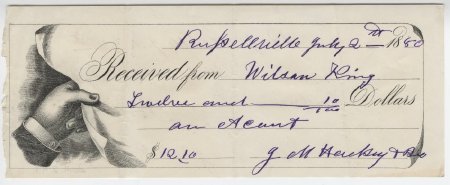 Russellville July 2nd 1880
Received from Wilson King
Twelve and 10/100 Dollars
on Acount
$12.10 J M